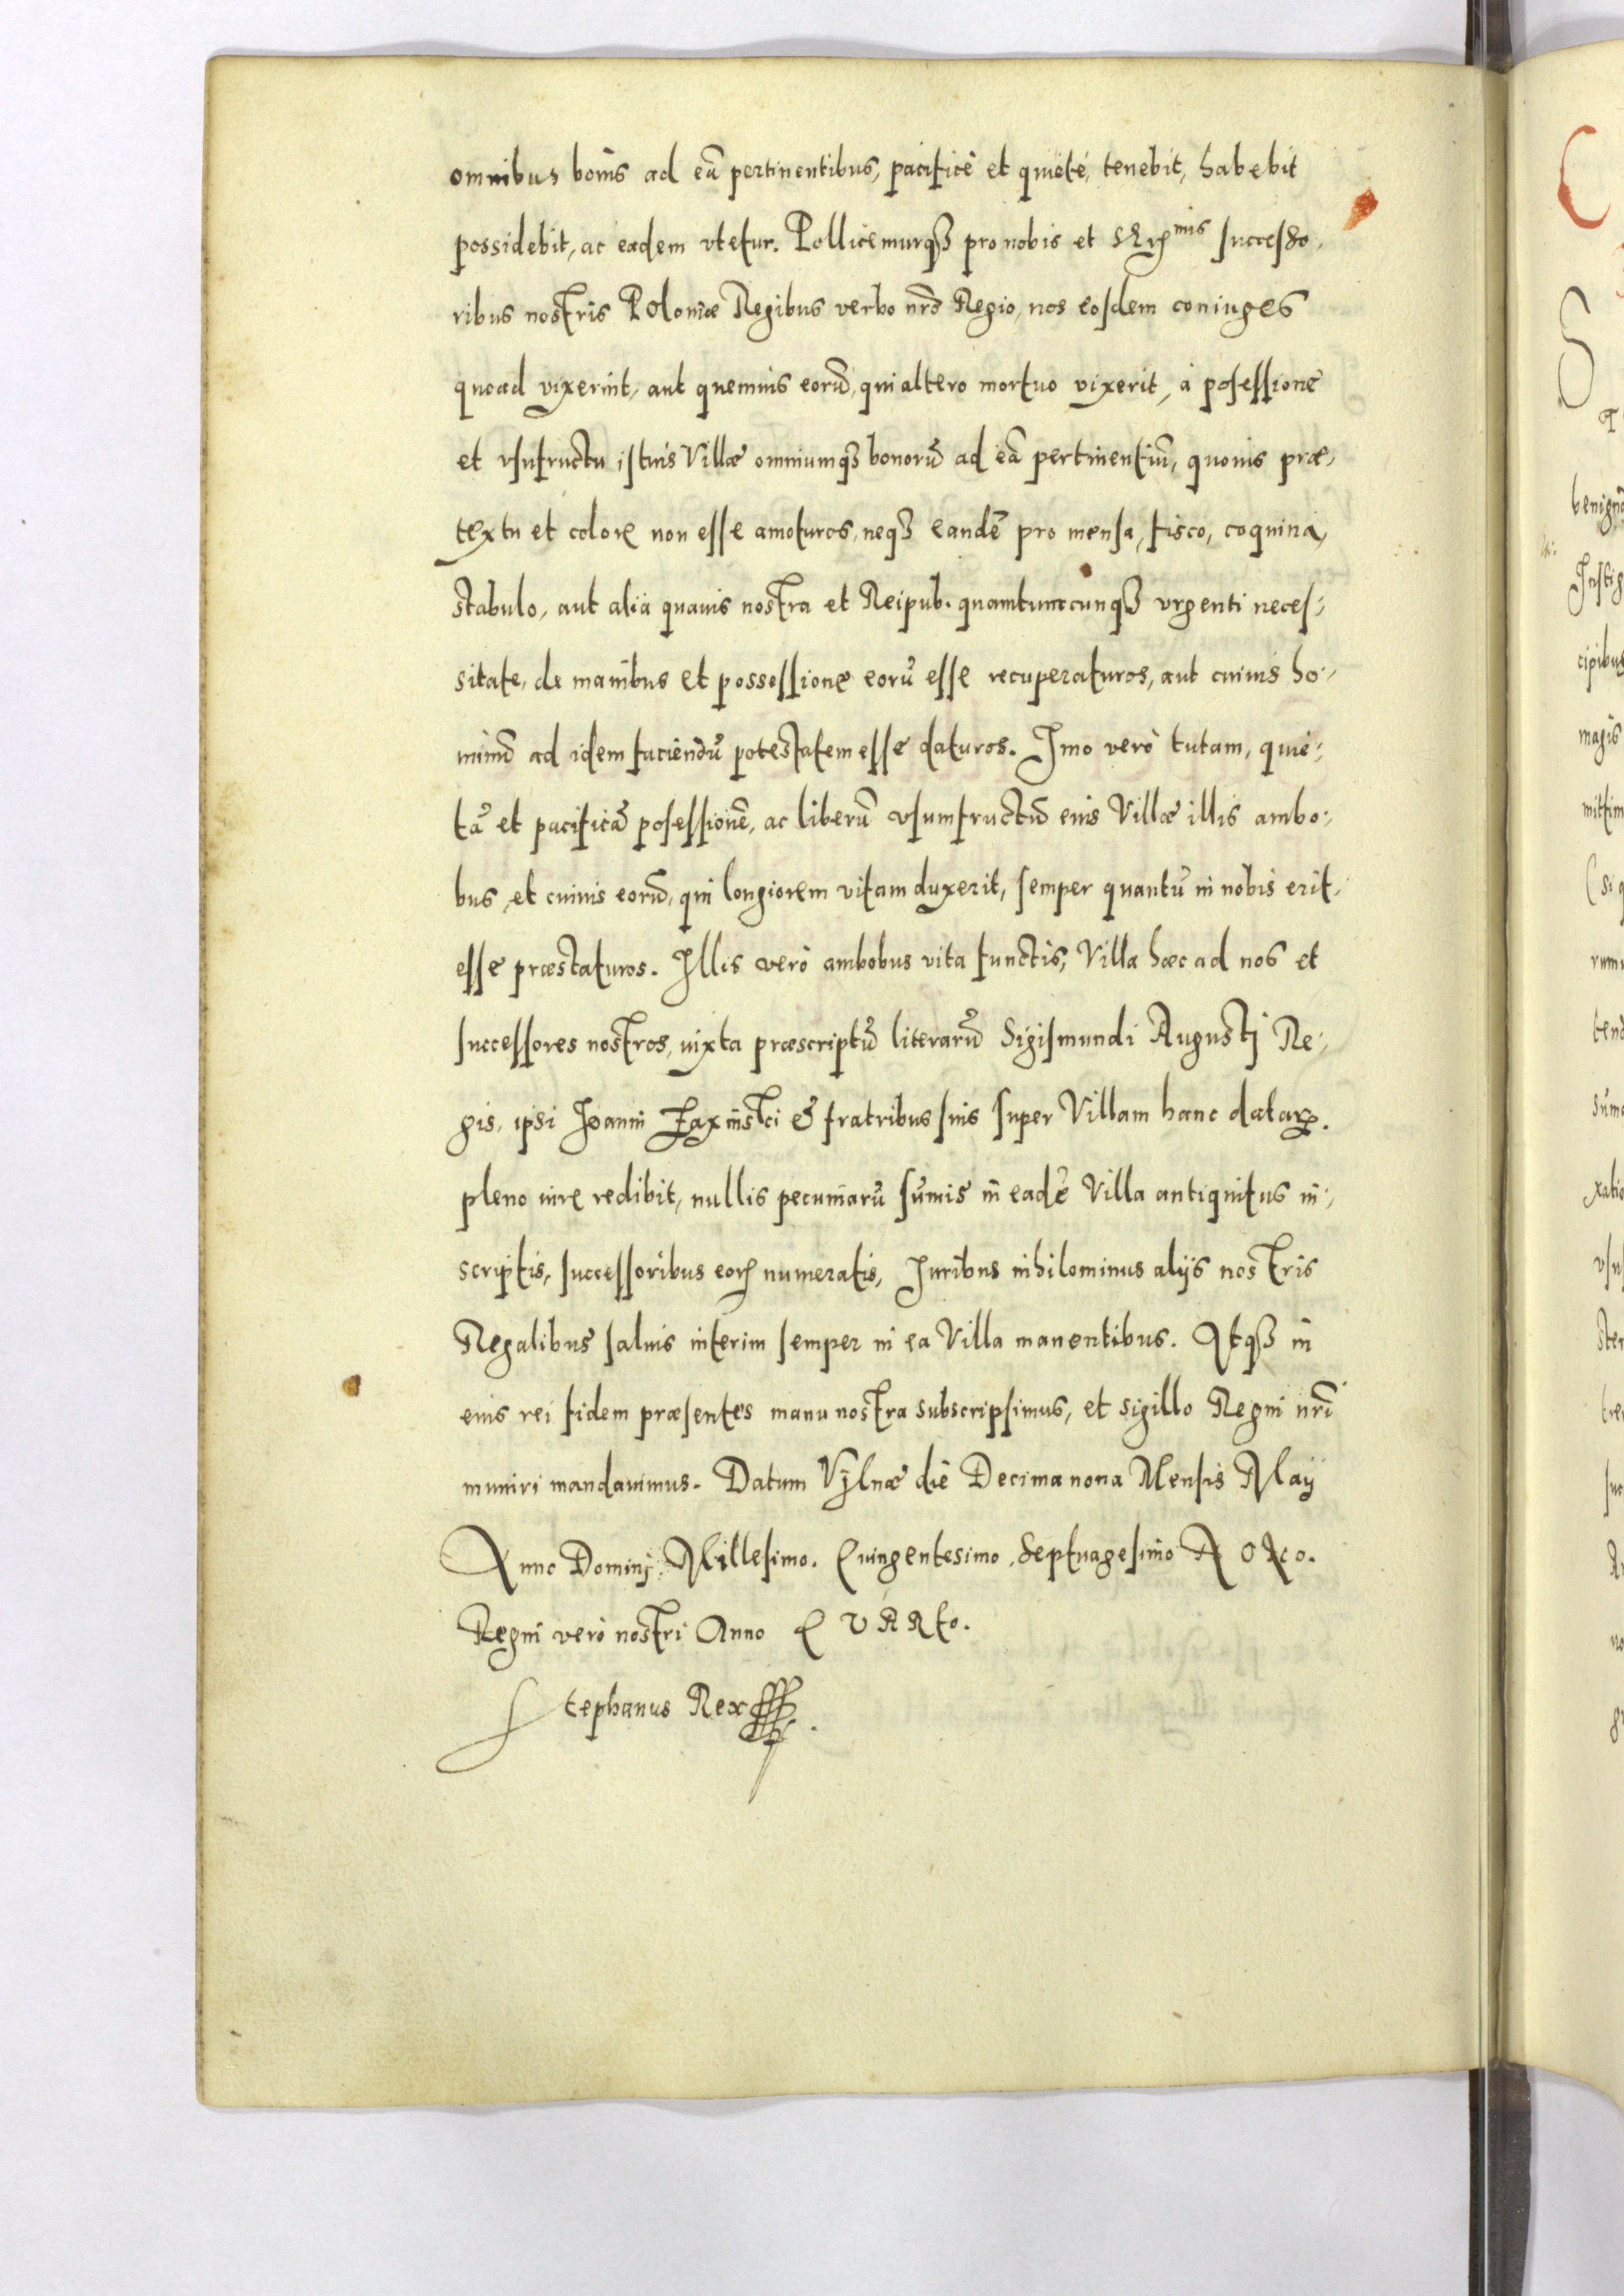 omnibus bonis ad eā pertinentibus, pacificè et quietè, tenebit, habebit
possidebit, ac eadem vtetur. Pollicemurq₃ pro nobis et successo,
ribus nostris Poloniæ Regibus verbo nr̄o Regio, nos eosdem coniuges
quoad vixerint, aut quemuis eorū, qui altero mortuo vixerit, à posessione
et vsufructu istius Villæ omniumq₃ bonorū ad eā pertinentiū, quouis præ,
textu et colore non esse amoturos, neq₃ eandē pro mensa, fisco, coquina,
stabulo, aut alia quauis nostra et Reipub. quamtumcunq₃ vrgenti neces,
sitate, de manibus et possessione eorū esse recuperaturos, aut cuiuis ho,
minū ad idem faciendū potestatem esse daturos. Imo verò tutam, quie,
tā et pacificā posessionē, ac liberū vsumfructū eius Villæ illis ambo,
bus, et cuiuis eorū, qui longiorem vitam duxerit, semper quantū in nobis erit,
esse præstaturos. Illis verò ambobus vita functis, Villa hæc ad nos et
successores nostros, iuxta præscriptū literarū Sigismundi Augustj Re,
gis, ipsi Joanni & fratribus suis super Villam hanc datarꝝ.
pleno iure redibit, nullis pecuniarū sum̄is in eadē Villa antiquitus in,
scriptis, successoribus eorꝝ numeratis, Juribus nihilominus alijs nostris
Regalibus saluis interim semper in ea Villa manentibus. Atq₃ in
eius rei fidem præsentes manu nostra subscripsimus, et sigillo Regni nr̄i
muniri mandauimus. Datum Vylnæ die Decima nona Mensis Maij
Anno Dominj Millesimo. Quingentesimo. Septuagesimo NONO.
Regni verò nostri Anno QUARto.
Stephanus Rex